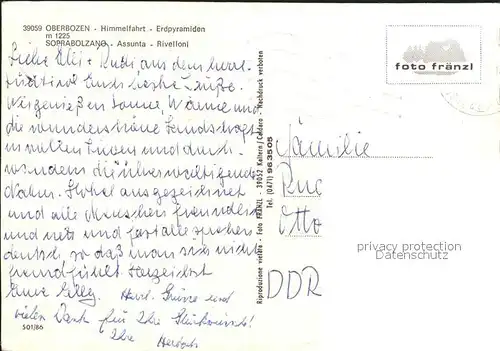 39059 OBERBOZEN - Himmelfahrt - Erdpyramiden
m 1225
SOPRABOLZANO - Assunta - Rivelloni
Liebe + Rudi aus dem
Euch liebe Grüße.
Wir genießen Sonne, Wärme und
die wunderschöne Landschaft
in vollen Zügen und durch-
wandern die überwältigende
Natur. Hotel ausgezeichnet
und alle Menschen freundlich
und nett und fast alle sprechen
deutsch, so daß man sich nicht
fremd fühlt. Herzlichst
Eure Herzl. Grüsse und
vielen Dank für Ihre Glückwünsche!
Ihre
501/86
Riproduzione vietata - Foto FRÄNZL - 39052 Kaltern/Caldaro - Nachdruck verboten
Tel. (0471) 963505
foto fränzl
Familie
Otto
DDR
privacy protection
Datenschutz